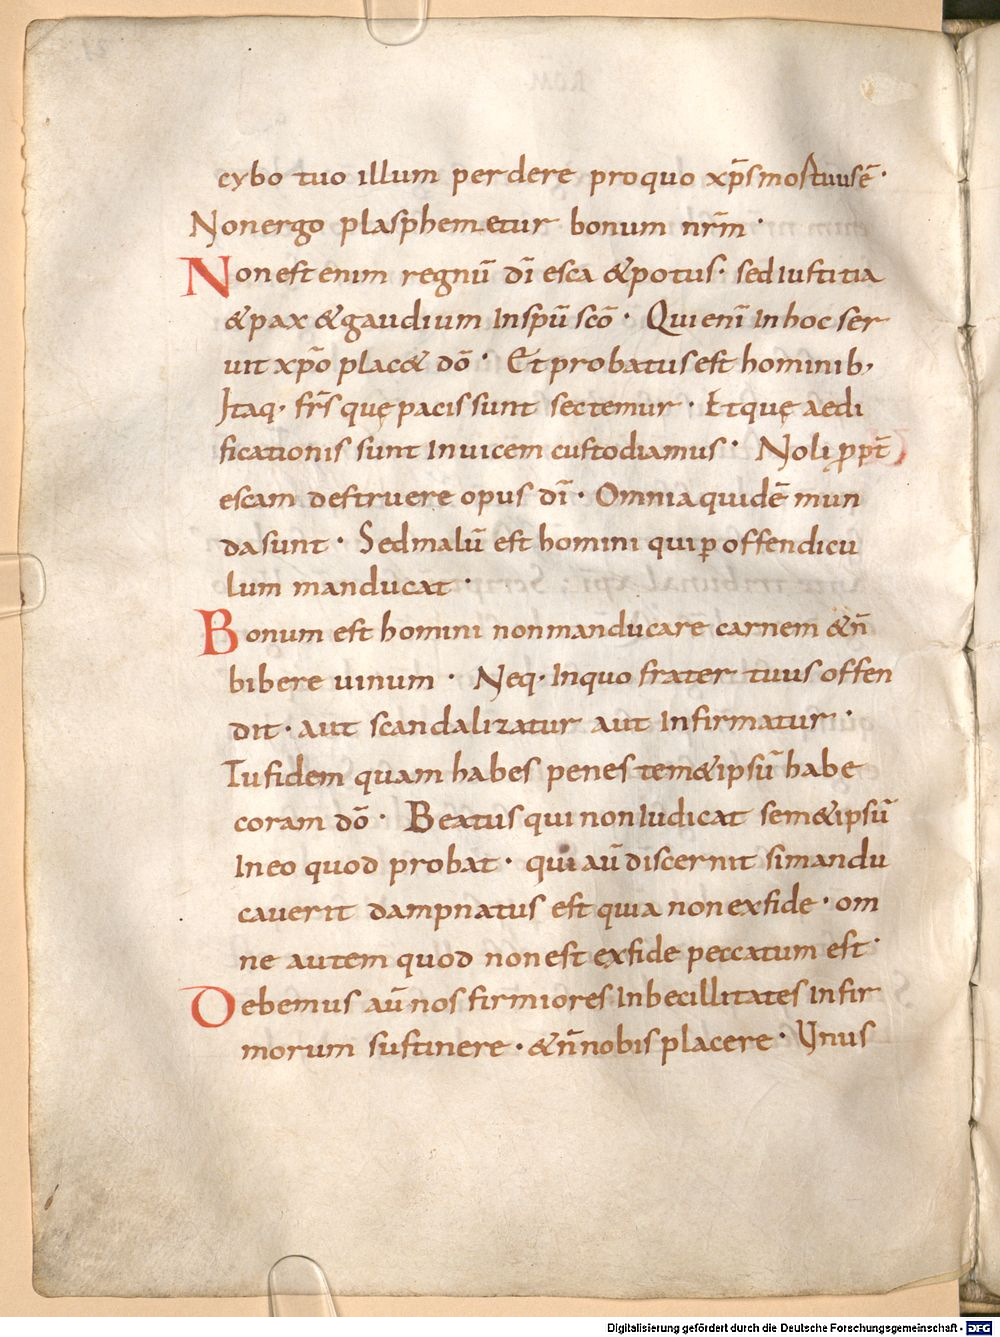 cybo tuo illum perdere pro quo xp̄s mortuus ē·
Non ergo plasphemetur bonum nr̄m·
Non est enim regnū dī esca & potus· sed iustitia
& pax & gaudium In spū scō· Qui enī In hoc ser
uit xp̄o plac& dō· Et probatus est hominib,
Itaq· fr̄s quę pacis sunt sectemur· Et quę aedi
ficationis sunt Inuicem custodiamus· Noli ꝓpt̄
escam destruere opus dī· Omnia quidē mun
da sunt· Sed malū est homini qui ꝑ offendicu
lum manducat·
Bonum est homini non manducare carnem & n̄
bibere uinum· Neq· In quo frater tuus offen
dit· aut scandalizatur aut Infirmatur·
Tu fidem quam habes penes tem&ipsū habe
coram dō· Beatus qui non Iudicat sem&ipsū
In eo quod probat· qui aū discernit si mandu
cauerit dampnatus est quia non ex fide· om
ne autem quod non est ex fide peccatum est·
Debemus aū nos firmiores Inbecillitates Infir
morum sustinere· & n̄ nobis placere· Unus
Digitalisierung gefördert durch die Deutsche Forschungsgemeinschaft - DFG